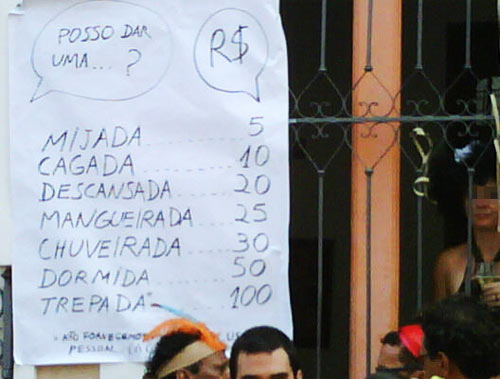 POSSO DAR
UMA... ?
R$
MIJADA 5
CAGADA 10
DESCANSADA 20
MANGUEIRADA 25
CHUVEIRADA 30
DORMIDA 50
TREPADA* 100
* NÃO FORNECEMOS
PESSOAL